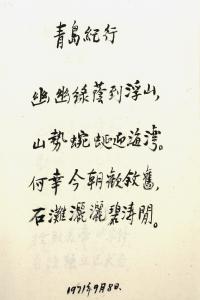 青島紀行
幽幽綠蔭到浮山,
山勢蜿蜒迎海灣。
何幸今朝歡敘舊,
石灘灑灑碧濤間。
1971年9月8日.